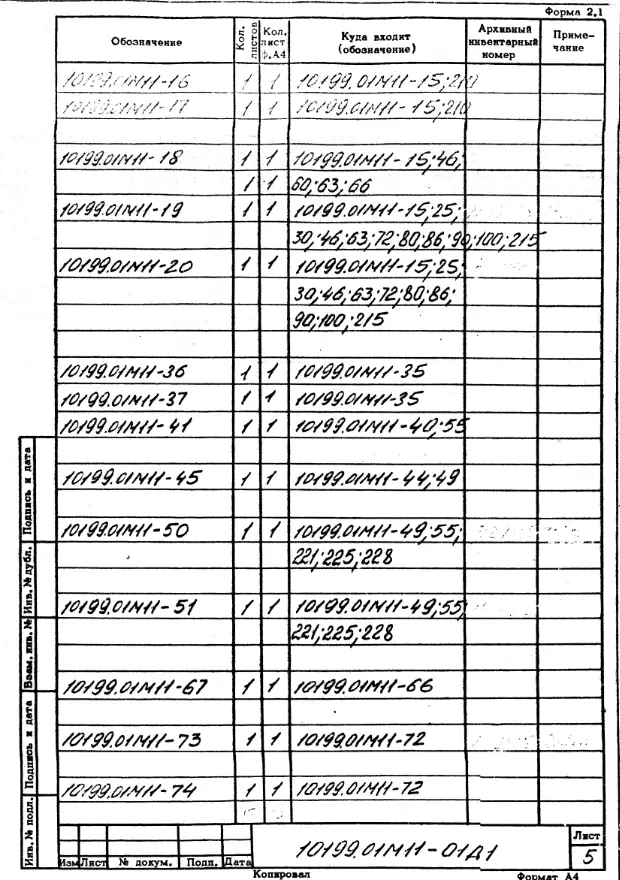 Форма 2.1
Обозначение Кол. листов Кол. лист ф.А4 Куда входит (обозначение) Архивный инвентарный номер Примечание
10199.01М11-16 1 1 10199.01М11-15;210
10199.01М11-17 1 1 10199.01М11-15;210
10199.01М11-18 1 1 10199.01М11-15;46;
1 1 60;63;66
10199.01М11-19 1 1 10199.01М11-15;25;
30;46;63;72;80;86;90;100;215
10199.01М11-20 1 1 10199.01М11-15;25;
30;46;63;72;80;86;
90;100;215
10199.01М11-36 1 1 10199.01М11-35
10199.01М11-37 1 1 10199.01М11-35
10199.01М11-41 1 1 10199.01М11-40;55
10199.01М11-45 1 1 10199.01М11-44;49
10199.01М11-50 1 1 10199.01М11-49;55;
221;225;228
10199.01М11-51 1 1 10199.01М11-49;55;
221;225;228
10199.01М11-67 1 1 10199.01М11-66
10199.01М11-73 1 1 10199.01М11-72
10199.01М11-74 1 1 10199.01М11-72
Подпись и дата
Инв. № дубл.
Взам. инв. №
Подпись и дата
Инв. № подл.
Изм Лист № докум. Подп. Дата
10199.01М11-01Д1
Лист
5
Копировал Формат А4